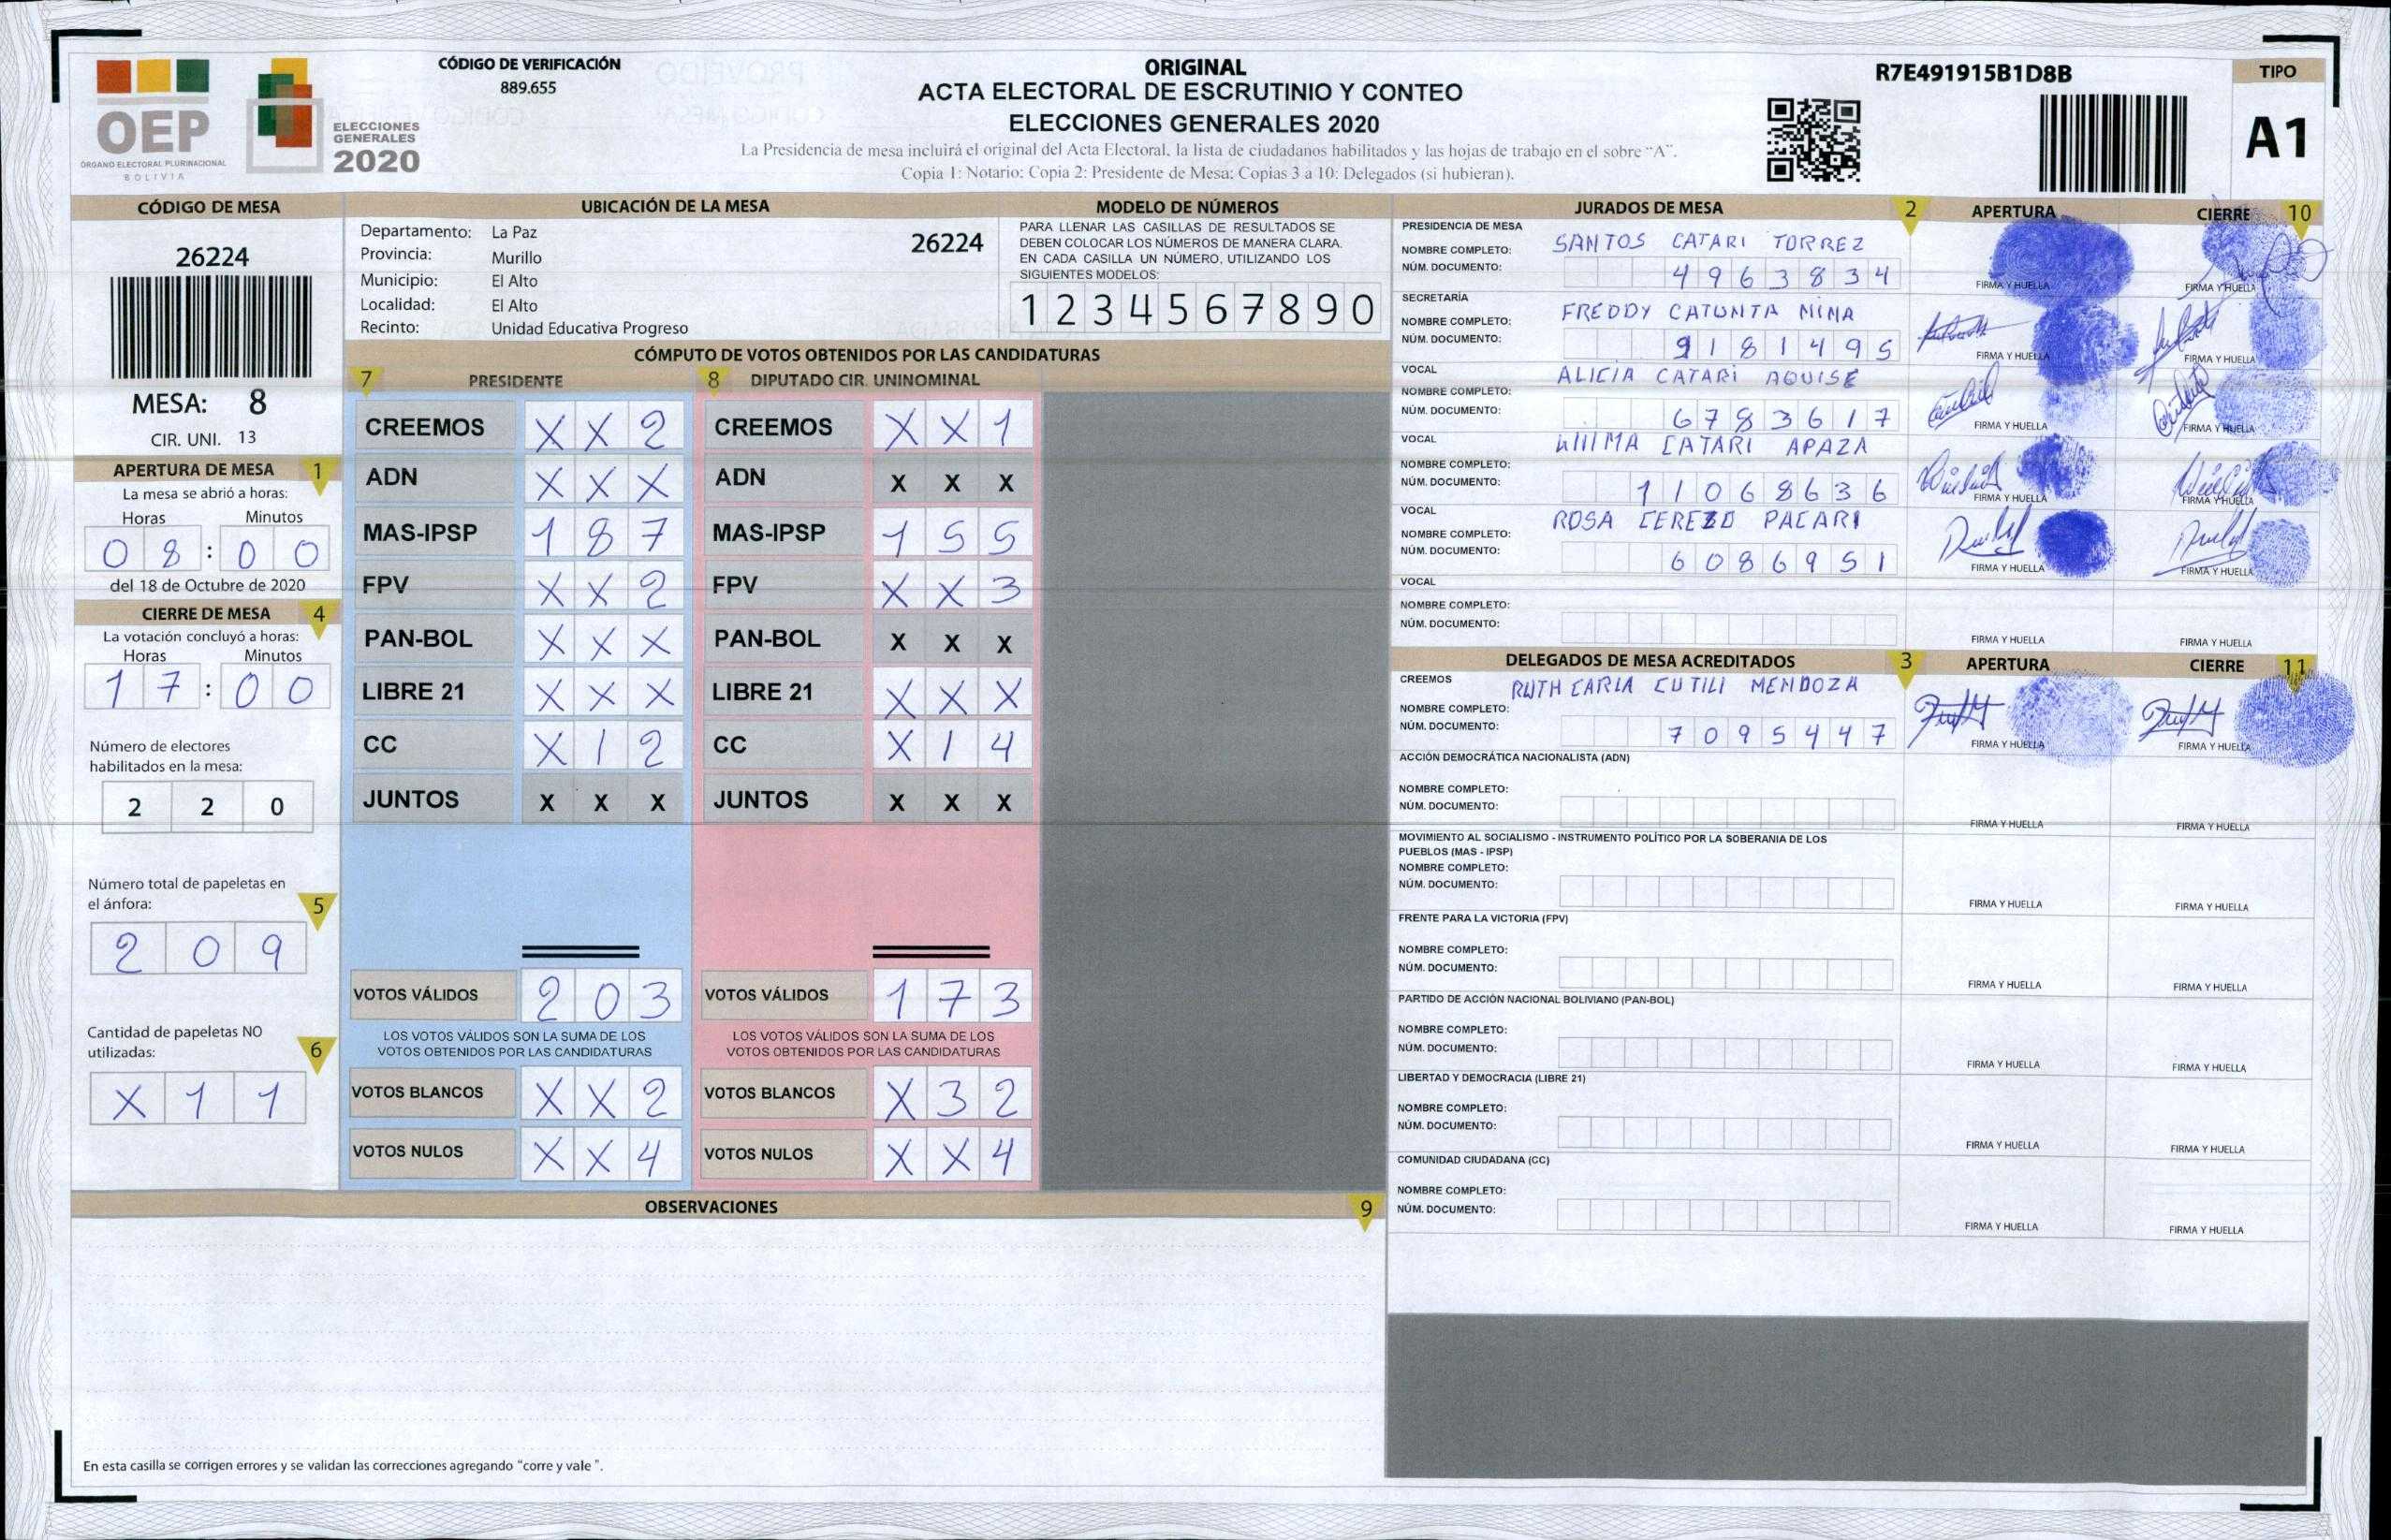 OEP
ÓRGANO ELECTORAL PLURINACIONAL
BOLIVIA
ELECCIONES
GENERALES
2020
CÓDIGO DE VERIFICACIÓN
889.655
ORIGINAL
ACTA ELECTORAL DE ESCRUTINIO Y CONTEO
ELECCIONES GENERALES 2020
La Presidencia de mesa incluirá el original del Acta Electoral, la lista de ciudadanos habilitados y las hojas de trabajo en el sobre "A".
Copia 1: Notario; Copia 2: Presidente de Mesa; Copias 3 a 10: Delegados (si hubieran).
R7E491915B1D8B
TIPO
A1
CÓDIGO DE MESA
26224
MESA: 8
CIR. UNI. 13
APERTURA DE MESA 1
La mesa se abrió a horas:
Horas Minutos
0 8 : 0 0
del 18 de Octubre de 2020
CIERRE DE MESA 4
La votación concluyó a horas:
Horas Minutos
1 7 : 0 0
Número de electores
habilitados en la mesa:
2 2 0
Número total de papeletas en
el ánfora: 5
2 0 9
Cantidad de papeletas NO
utilizadas: 6
X 1 1
UBICACIÓN DE LA MESA
Departamento: La Paz 26224
Provincia: Murillo
Municipio: El Alto
Localidad: El Alto
Recinto: Unidad Educativa Progreso
MODELO DE NÚMEROS
PARA LLENAR LAS CASILLAS DE RESULTADOS SE
DEBEN COLOCAR LOS NÚMEROS DE MANERA CLARA.
EN CADA CASILLA UN NÚMERO, UTILIZANDO LOS
SIGUIENTES MODELOS:
1 2 3 4 5 6 7 8 9 0
CÓMPUTO DE VOTOS OBTENIDOS POR LAS CANDIDATURAS
7 PRESIDENTE 8 DIPUTADO CIR. UNINOMINAL
CREEMOS X X 2 CREEMOS X X 1
ADN X X X ADN X X X
MAS-IPSP 1 8 7 MAS-IPSP 1 5 5
FPV X X 2 FPV X X 3
PAN-BOL X X X PAN-BOL X X X
LIBRE 21 X X X LIBRE 21 X X X
CC X 1 2 CC X 1 4
JUNTOS X X X JUNTOS X X X
VOTOS VÁLIDOS 2 0 3 VOTOS VÁLIDOS 1 7 3
LOS VOTOS VÁLIDOS SON LA SUMA DE LOS LOS VOTOS VÁLIDOS SON LA SUMA DE LOS
VOTOS OBTENIDOS POR LAS CANDIDATURAS VOTOS OBTENIDOS POR LAS CANDIDATURAS
VOTOS BLANCOS X X 2 VOTOS BLANCOS X 3 2
VOTOS NULOS X X 4 VOTOS NULOS X X 4
OBSERVACIONES 9
En esta casilla se corrigen errores y se validan las correcciones agregando "corre y vale ".
JURADOS DE MESA 2 APERTURA CIERRE 10
PRESIDENCIA DE MESA
NOMBRE COMPLETO: SANTOS CATARI TORREZ
NÚM. DOCUMENTO: 4 9 6 3 8 3 4 FIRMA Y HUELLA FIRMA Y HUELLA
SECRETARÍA
NOMBRE COMPLETO: FREDDY CATUNTA MINA
NÚM. DOCUMENTO: 9 1 8 1 4 9 5 FIRMA Y HUELLA FIRMA Y HUELLA
VOCAL
NOMBRE COMPLETO: ALICIA CATARI AQUISE
NÚM. DOCUMENTO: 6 7 8 3 6 1 7 FIRMA Y HUELLA FIRMA Y HUELLA
VOCAL
NOMBRE COMPLETO: CATARI APAZA
NÚM. DOCUMENTO: 1 1 0 6 8 6 3 6 FIRMA Y HUELLA FIRMA Y HUELLA
VOCAL
NOMBRE COMPLETO: ROSA CEREZO PACARI
NÚM. DOCUMENTO: 6 0 8 6 9 5 1 FIRMA Y HUELLA FIRMA Y HUELLA
VOCAL
NOMBRE COMPLETO:
NÚM. DOCUMENTO: FIRMA Y HUELLA FIRMA Y HUELLA
DELEGADOS DE MESA ACREDITADOS 3 APERTURA CIERRE 11
CREEMOS
NOMBRE COMPLETO: RUTH CARLA CUTILI MENDOZA
NÚM. DOCUMENTO: 7 0 9 5 4 4 7 FIRMA Y HUELLA FIRMA Y HUELLA
ACCIÓN DEMOCRÁTICA NACIONALISTA (ADN)
NOMBRE COMPLETO:
NÚM. DOCUMENTO: FIRMA Y HUELLA FIRMA Y HUELLA
MOVIMIENTO AL SOCIALISMO - INSTRUMENTO POLÍTICO POR LA SOBERANIA DE LOS
PUEBLOS (MAS - IPSP)
NOMBRE COMPLETO:
NÚM. DOCUMENTO: FIRMA Y HUELLA FIRMA Y HUELLA
FRENTE PARA LA VICTORIA (FPV)
NOMBRE COMPLETO:
NÚM. DOCUMENTO: FIRMA Y HUELLA FIRMA Y HUELLA
PARTIDO DE ACCIÓN NACIONAL BOLIVIANO (PAN-BOL)
NOMBRE COMPLETO:
NÚM. DOCUMENTO: FIRMA Y HUELLA FIRMA Y HUELLA
LIBERTAD Y DEMOCRACIA (LIBRE 21)
NOMBRE COMPLETO:
NÚM. DOCUMENTO: FIRMA Y HUELLA FIRMA Y HUELLA
COMUNIDAD CIUDADANA (CC)
NOMBRE COMPLETO:
NÚM. DOCUMENTO: FIRMA Y HUELLA FIRMA Y HUELLA